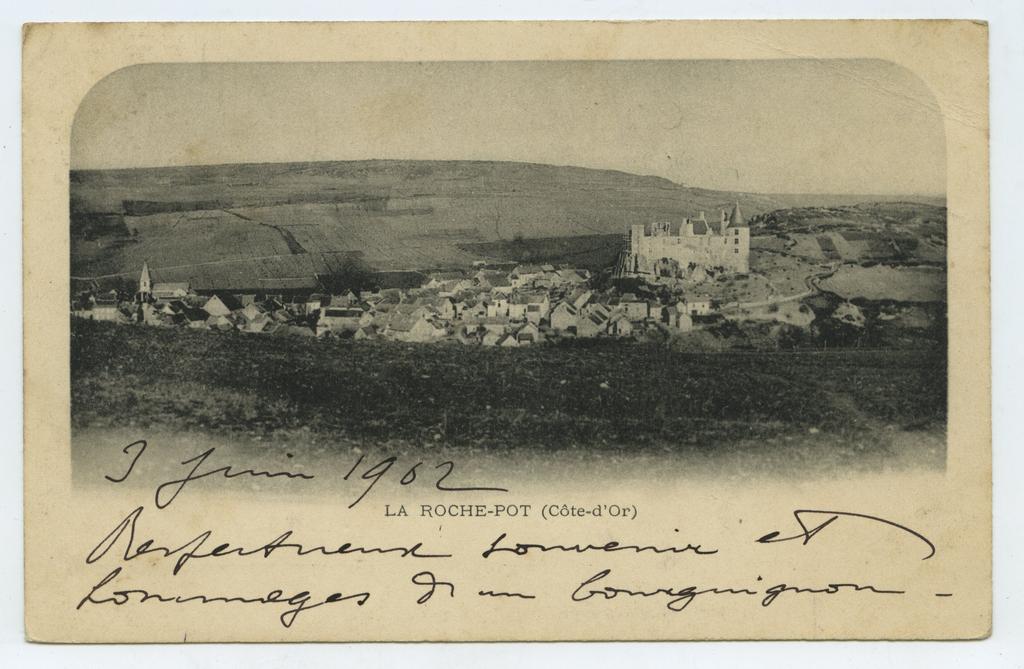 3 Juin 1902
LA ROCHE-POT (Côte-d'Or)
Respectueux souvenir et
hommages d'un bourguignon -